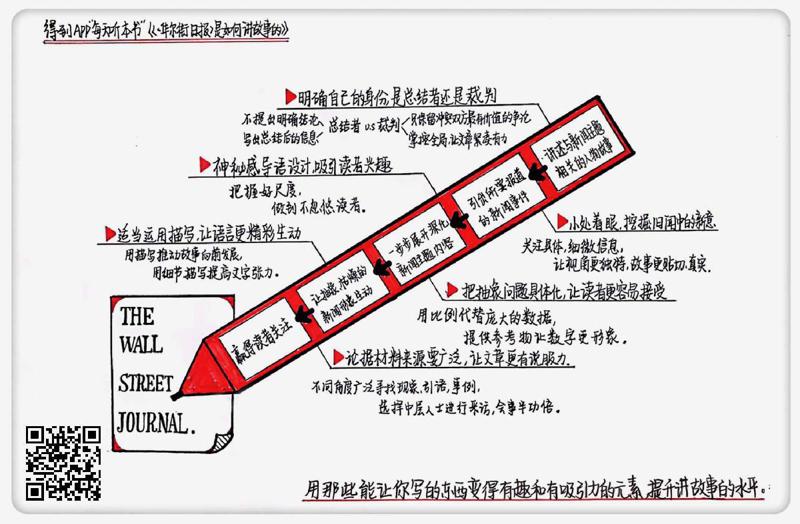 得到APP“每天听本书”《《华尔街日报》是如何讲故事的》
明确自己的身份,是总结者还是裁判
不提出明确结论、
写出总结后的信息
总结者 vs 裁判
只保留冲突双方最有价值的争论
掌控全局,让文章紧凑有力
神秘感导语设计,吸引读者兴趣
把握好尺度,
做到不忽悠读者。
适当运用描写,让语言更精彩生动
用描写推动故事向前发展,
用细节描写提高文字张力。
讲述与新闻主题
相关的人物故事
引出所要报道
的新闻事件
一步步展开深化
新闻主题内容
让抽象、枯燥的
新闻形象生动
赢得读者关注
小处着眼,挖掘旧闻中的新意
关注具体,细微信息,
让视角更独特,故事更贴切、真实。
把抽象问题具体化,让读者更容易接受
用比例代替庞大的数据,
提供参考物让数字更形象。
论据材料来源要广泛,让文章更有说服力
不同角度广泛寻找现象、引语、事例,
选择中层人士进行采访,会事半功倍。
THE
WALL
STREET
JOURNAL.
用那些能让你写的东西变得有趣和有吸引力的元素,提升讲故事的水平。